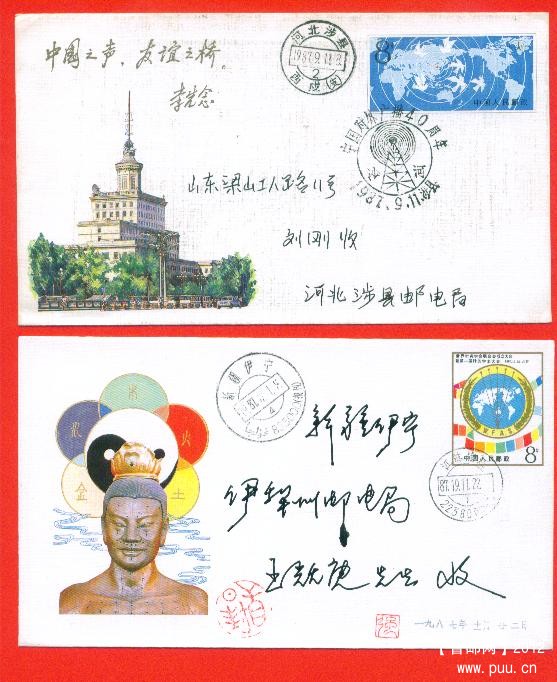 中国之声，友谊之桥。
李先念
河北涉县
1987.9.11
西戌
8分
中国人民邮政
中国对外广播40周年
山东梁山工人路11号
刘刚收
河北涉县邮电局
新疆伊宁
4
水
木
火
金
土
世界针灸学会联合会成立大会
W.F.A.S
8分
中国人民邮政
新疆伊宁
伊犁州邮电局
先生 收
一九八七年十一月廿二日
【首邮网】2012
www.puu.cn